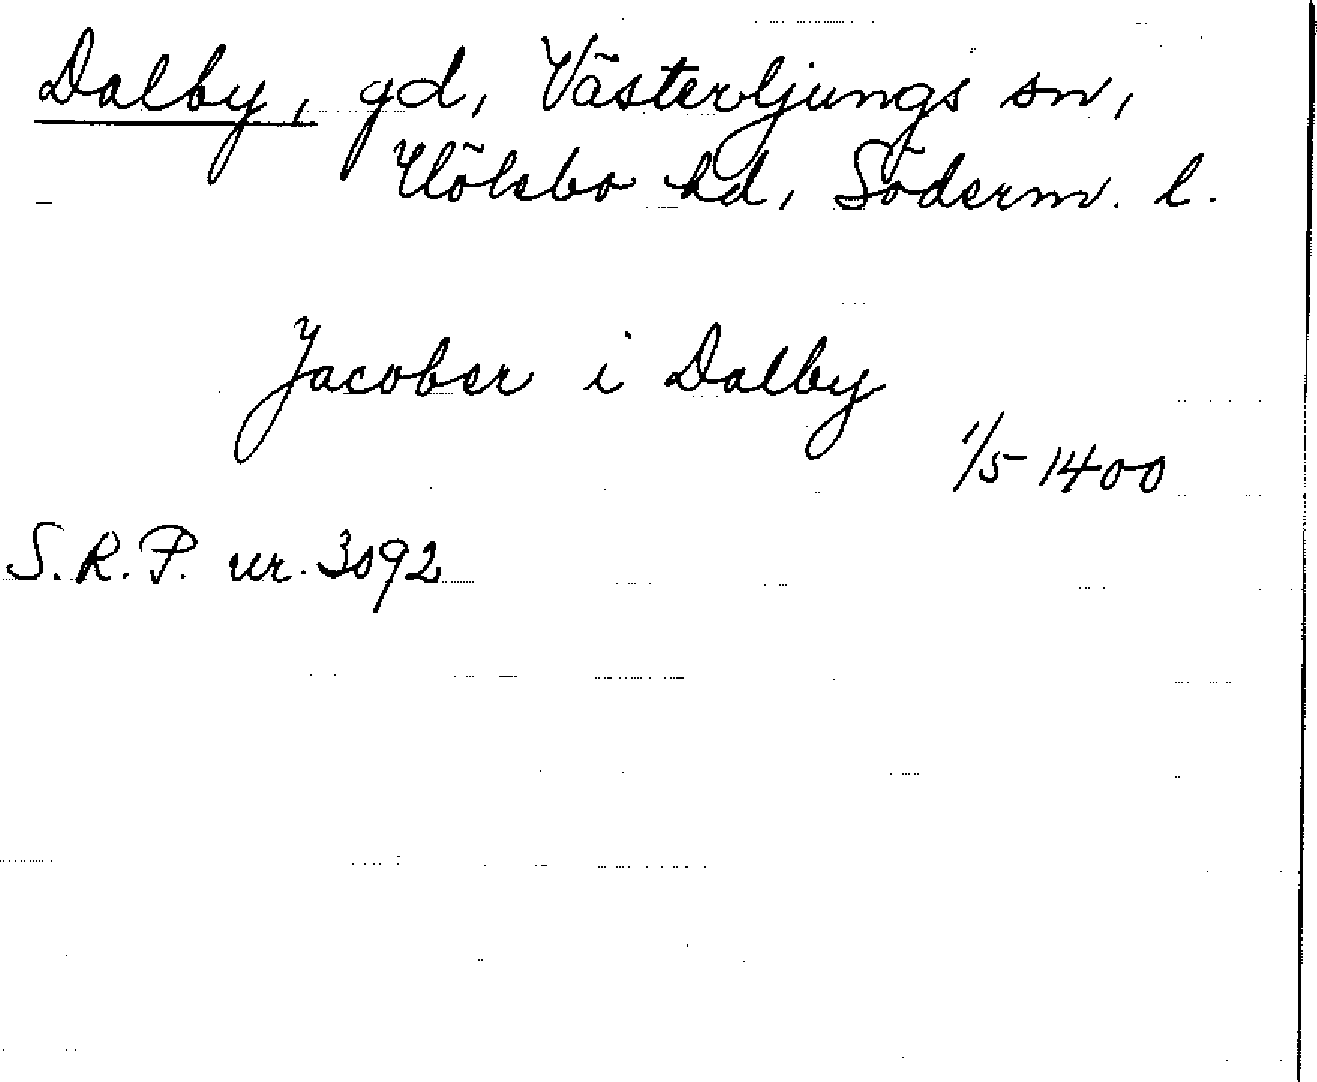 Dalby, gd, Västerljungs sn,
Hölebo hd, Söderm. l.
Jacober i Dalby
1/5 1400
S.R.P. nr. 3092